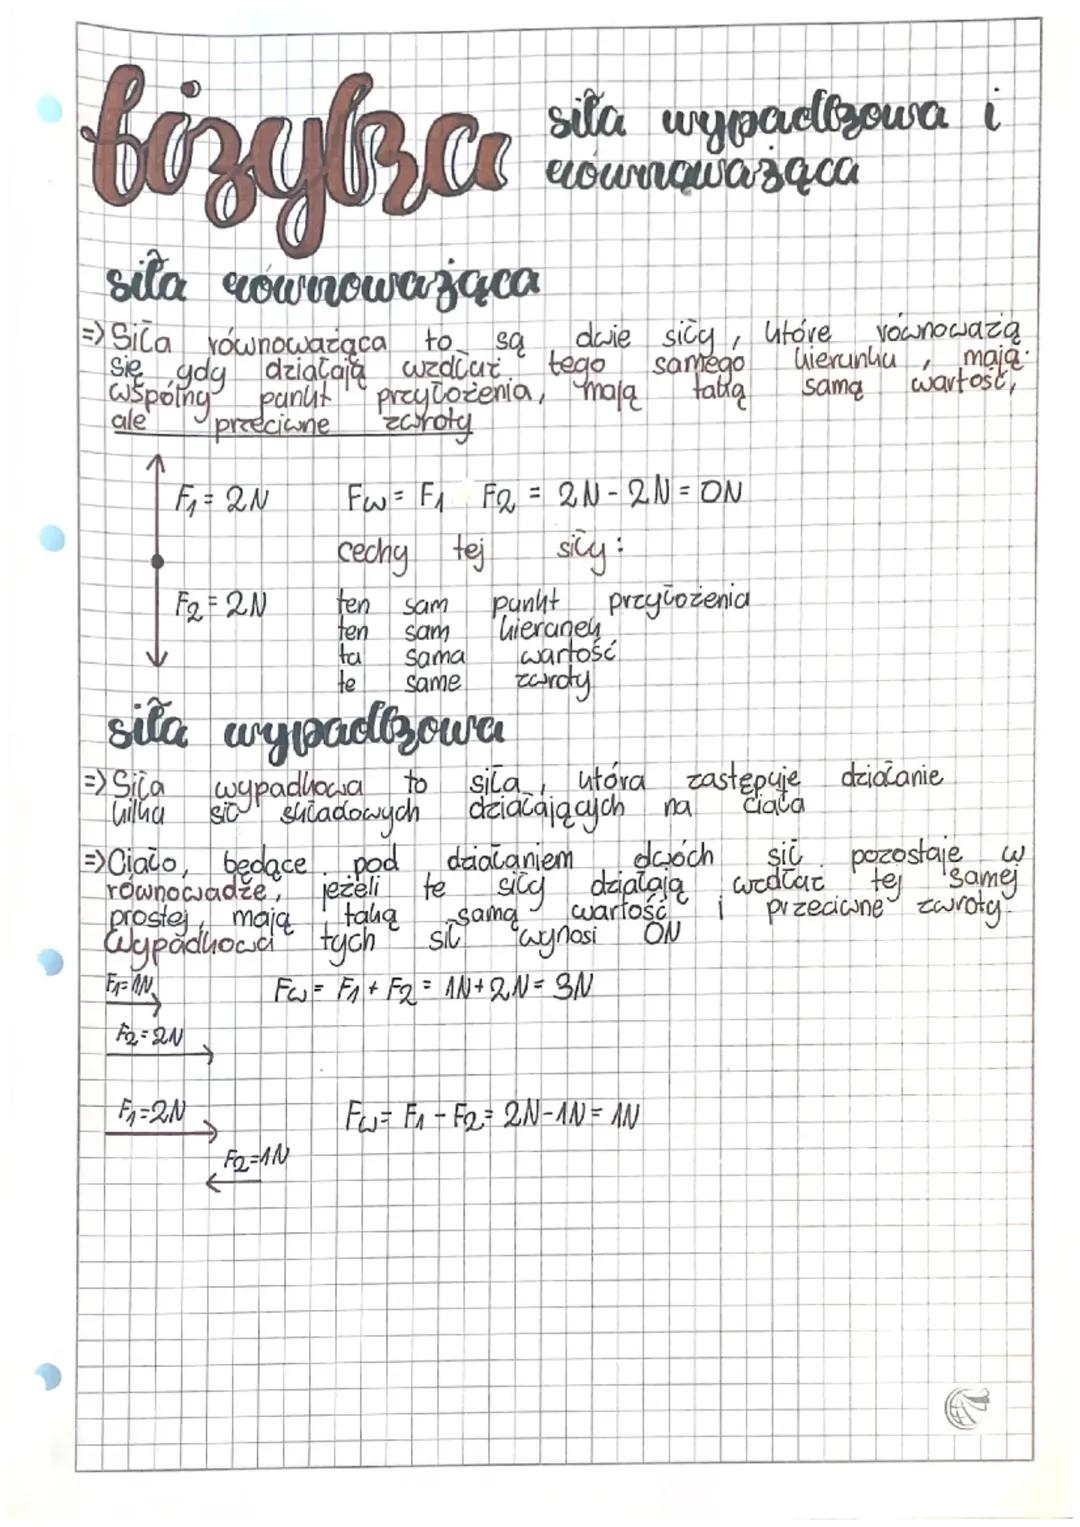 fizyka
siła wypadkowa i
równoważąca
siła równoważąca
=> Siła równoważąca to są dwie siły, które równoważą
się gdy działają wzdłuż tego samego kierunku, mają
wspólny punkt przyłożenia, mają taką samą wartość,
ale przeciwne zwroty
F₁ = 2N
Fw = F₁ F₂ = 2N - 2N = 0N
cechy tej siły:
F₂ = 2N
ten sam punkt przyłożenia
ten sam kierunek
ta sama wartość
te same zwroty
siła wypadkowa
=> Siła wypadkowa to siła, która zastępuje działanie
kilku sił składowych działających na ciała
=> Ciało, będące pod działaniem dwóch sił pozostaje w
równowadze, jeżeli te siły działają wzdłuż tej samej
prostej, mają taką samą wartość i przeciwne zwroty.
Wypadkowa tych sił wynosi 0N
F₁=1N
Fw = F₁ + F₂ = 1N + 2N = 3N
F₂=2N
F₁=2N
Fw = F₁ - F₂ = 2N-1N = 1N
F₂=1N